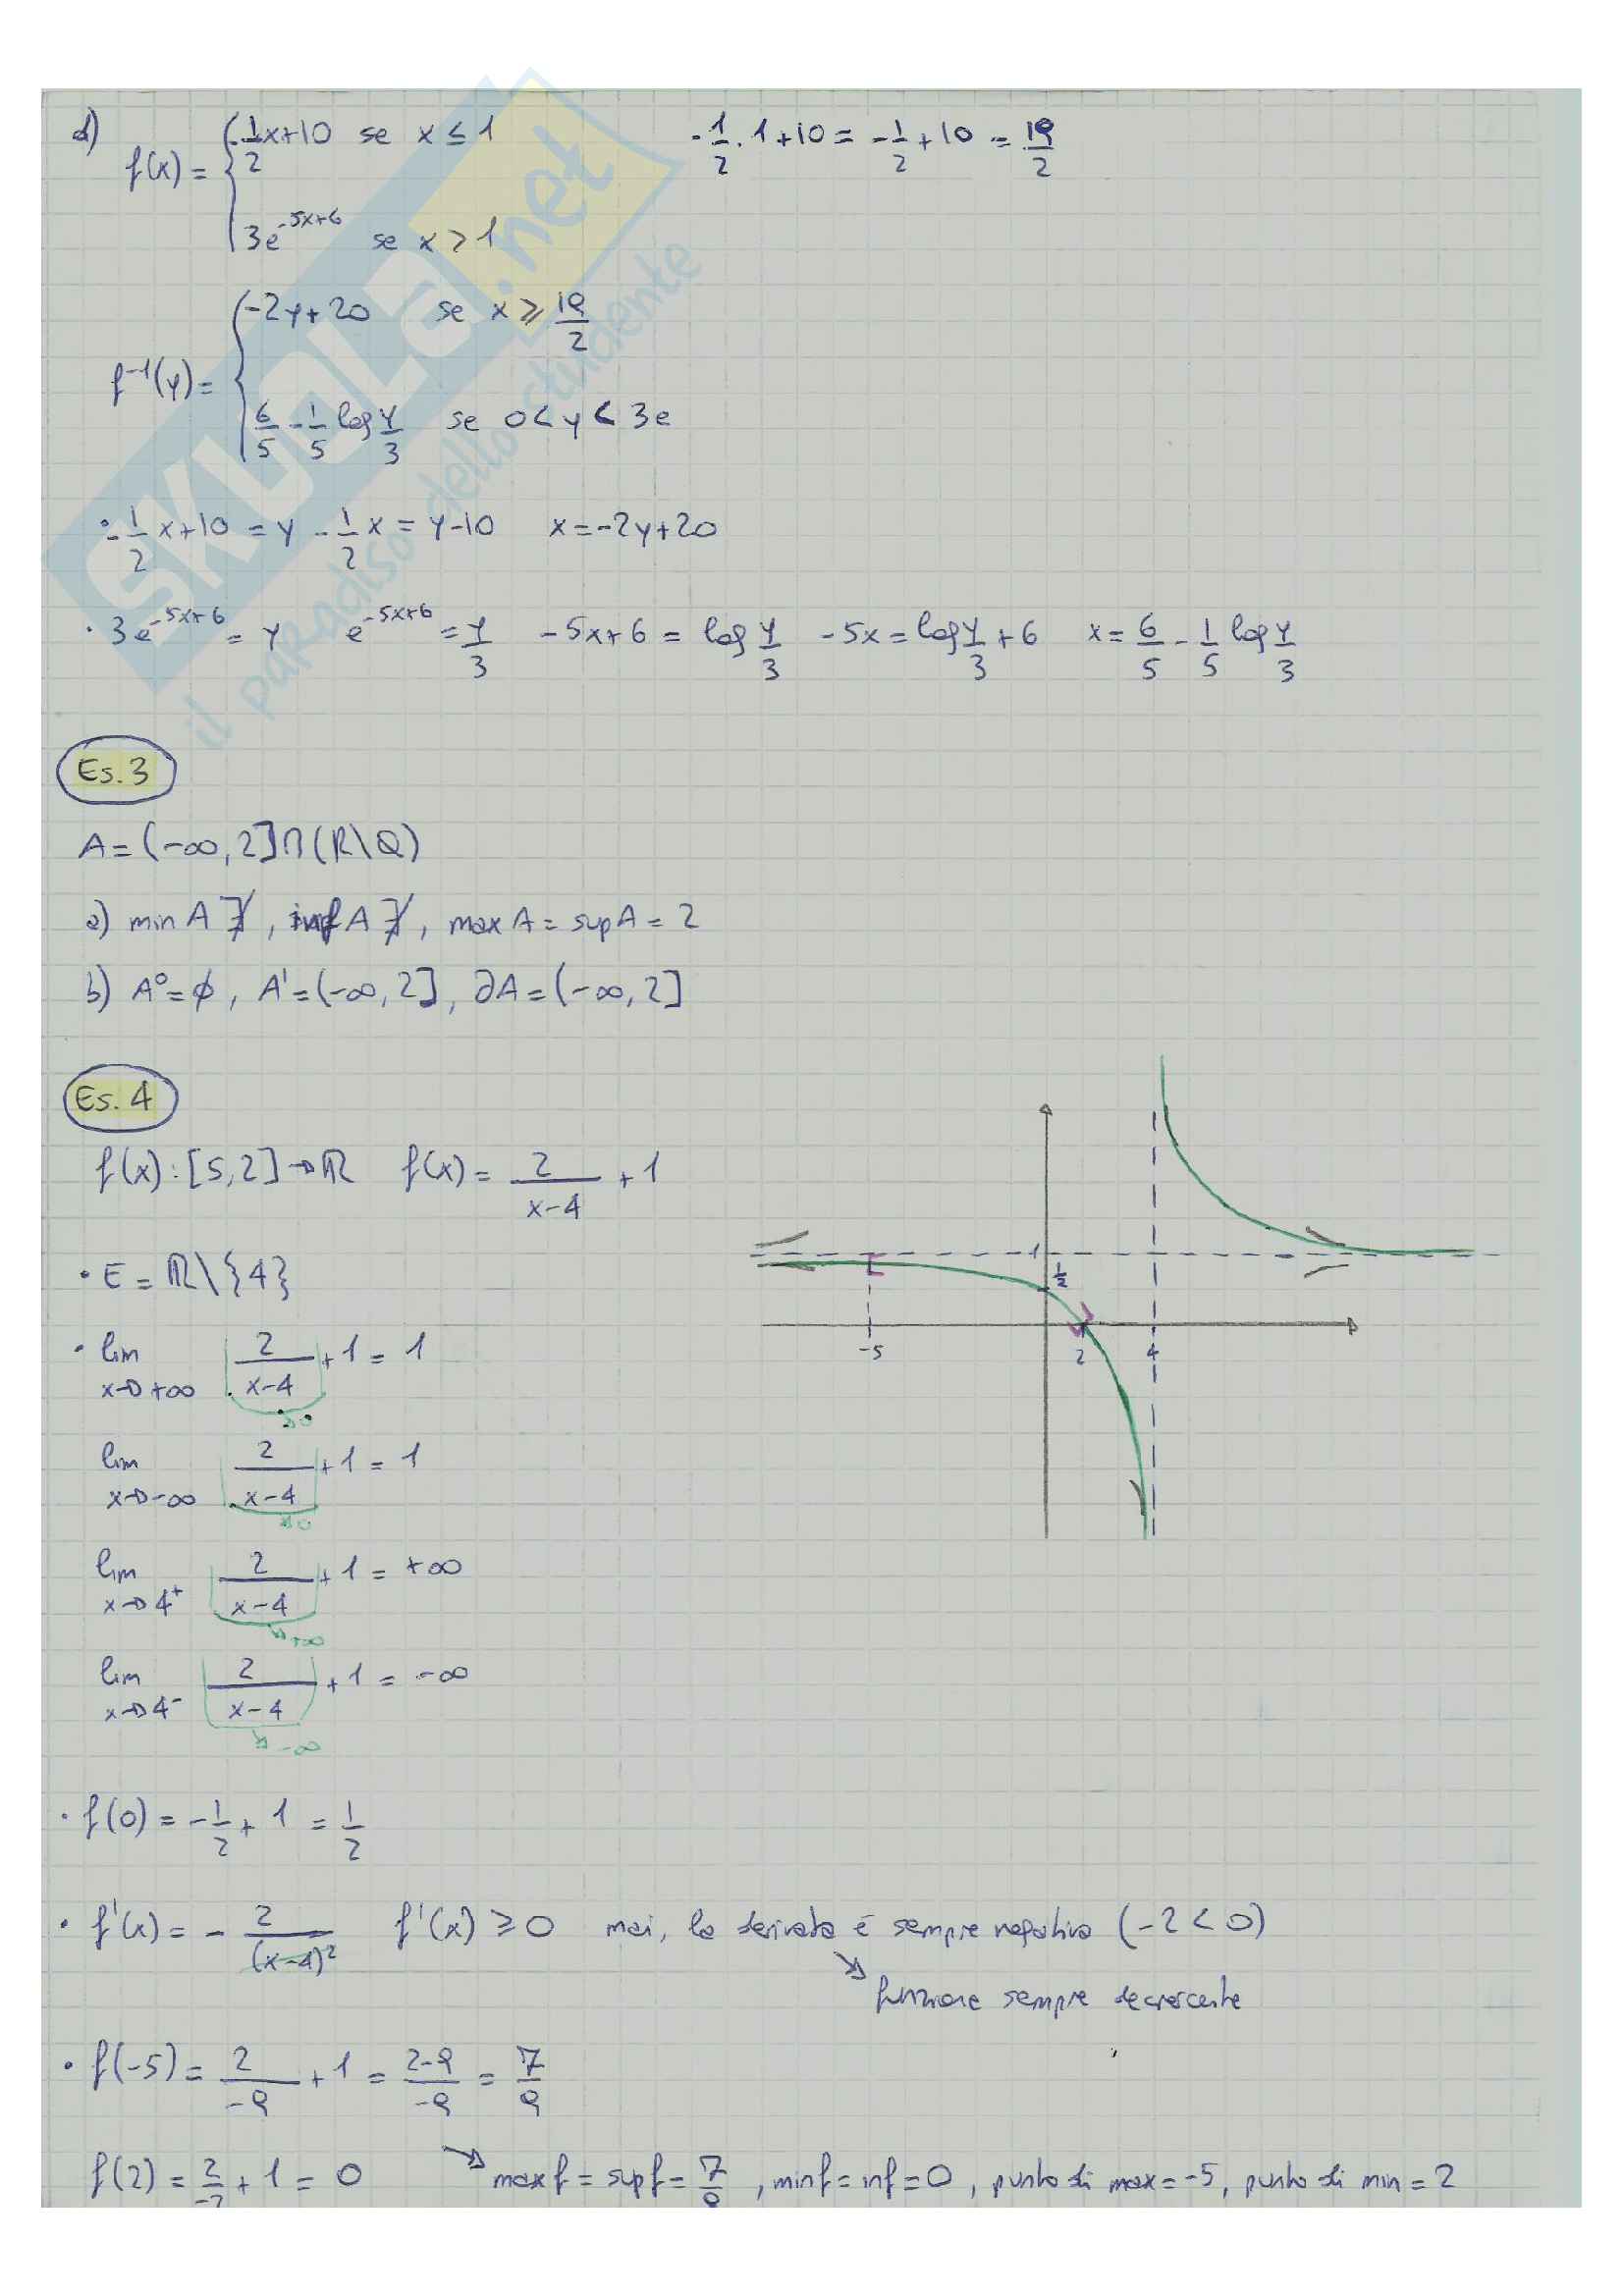 d) f(x) = { -1/2 x+10 se x ≤ 1    -1/2 · 1+10 = -1/2 + 10 = 19/2
3e^(-5x+6) se x > 1
f⁻¹(y) = { -2y+20 se x ⩾ 19/2
6/5 - 1/5 log y/3 se 0 < y < 3e
· -1/2 x+10 = y  -1/2 x = y-10  x = -2y+20
· 3e^(-5x+6) = y  e^(-5x+6) = y/3  -5x+6 = log y/3  -5x = log y/3 + 6  x = 6/5 - 1/5 log y/3
Es. 3
A = (-∞, 2] ∩ (R\Q)
a) min A ∄, inf A ∄, max A = sup A = 2
b) A° = ∅, A' = (-∞, 2], ∂A = (-∞, 2]
Es. 4
f(x): [5,2] → ℝ  f(x) = 2/(x-4) + 1
· E = ℝ\{4}
· lim x→+∞ 2/(x-4) + 1 = 1
→0
lim x→-∞ 2/(x-4) + 1 = 1
→0
lim x→4⁺ 2/(x-4) + 1 = +∞
→+∞
lim x→4⁻ 2/(x-4) + 1 = -∞
→-∞
1
1/2
-5 2 4
· f(0) = -1/2 + 1 = 1/2
· f'(x) = - 2/(x-4)²  f'(x) ⩾ 0 mai, la derivata é sempre negativa (-2 < 0)
↘ funzione sempre decrescente
· f(-5) = 2/-9 + 1 = 2-9/-9 = 7/9
f(2) = 2/-2 + 1 = 0 ↘ max f = sup f = 7/9, min f = inf = 0, punto di max = -5, punto di min = 2
SKUOLA.net
il paradiso dello studente